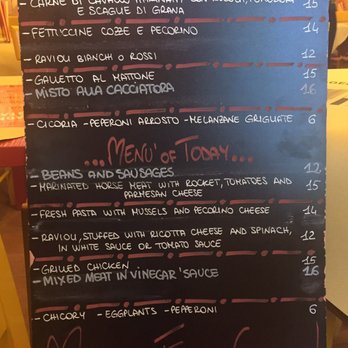 - CARNE DI CAVALLO MARINATA CON RUCOLA, POMODORI 15
E SCAGLIE DI GRANA
- FETTUCCINE COZZE E PECORINO 14
- RAVIOLI BIANCHI O ROSSI 12
- GALLETTO AL MATTONE 15
- MISTO ALLA CACCIATORA 16
- CICORIA - PEPERONI ARROSTO - MELANZANE GRIGLIATE 6
...MENU' OF TODAY...
- BEANS AND SAUSAGES 12
- MARINATED HORSE MEAT WITH ROCKET, TOMATOES AND 15
PARMESAN CHEESE
- FRESH PASTA WITH MUSSELS AND PECORINO CHEESE 14
- RAVIOLI, STUFFED WITH RICOTTA CHEESE AND SPINACH, 12
IN WHITE SAUCE OR TOMATO SAUCE
- GRILLED CHICKEN 15
- MIXED MEAT IN VINEGAR' SAUCE 16
- CHICORY - EGGPLANTS - PEPERONI 6